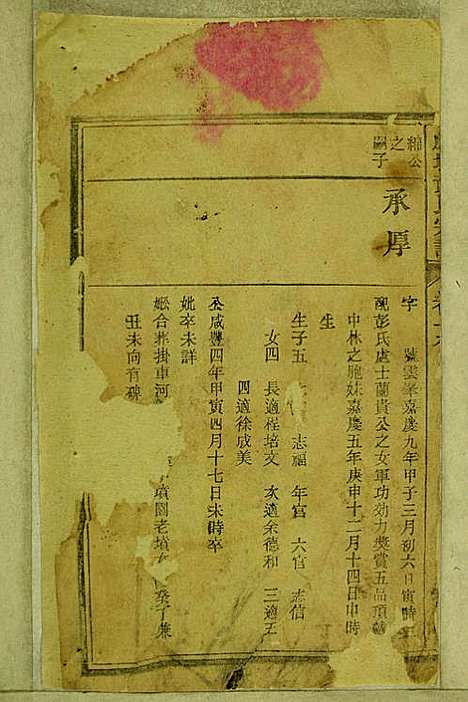 綿公
之
嗣子
承厚
字　號雲峯嘉慶九年甲子三月初六日寅時生
配彭氏處士蘭貴公之女軍功効力獎賞五品頂戴
中林之胞妹嘉慶五年庚申十二月十四日申時
生
生子五　志福　年官　六官　志信
女四　長適程培文　次適余德和　三適王
四適徐成美
公咸豐四年甲寅四月十七日未時卒
妣卒未詳
嫗合葬掛車河　墳園老墳　癸丁兼
丑未向有碑